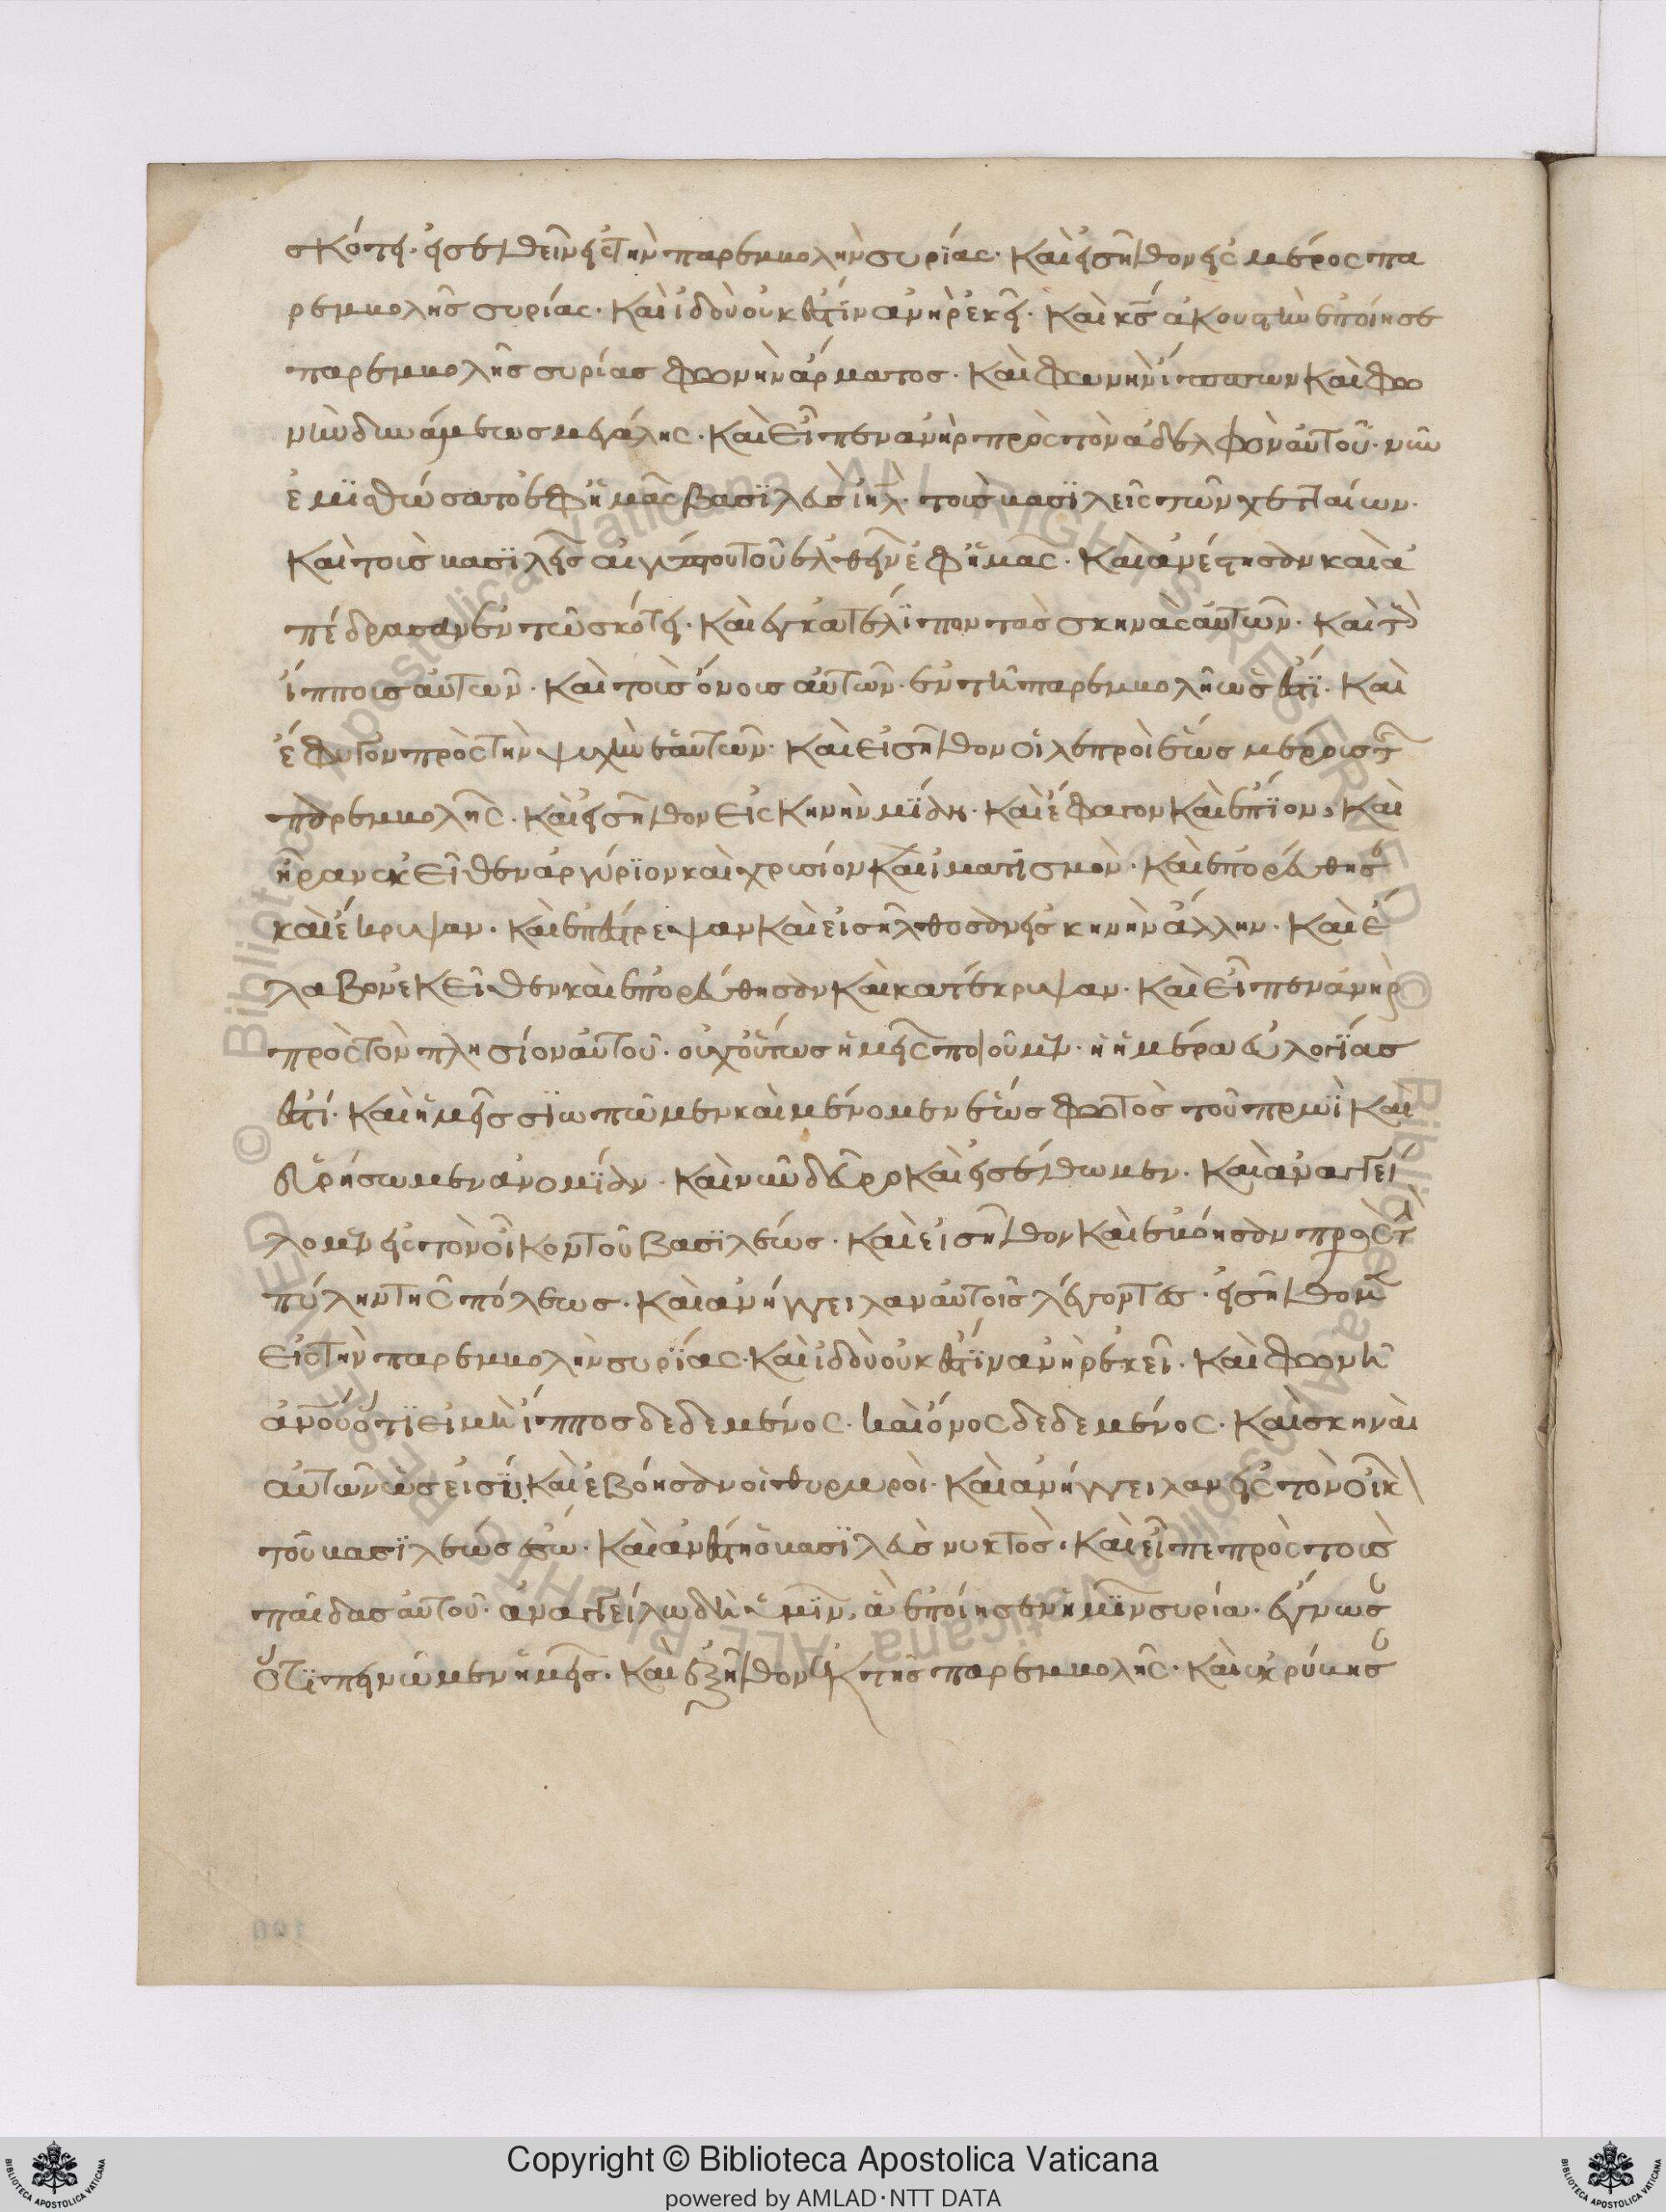 σκότει· εἰσελθεῖν εἰς τὴν παρεμβολὴν συρίας· καὶ εἰσῆλθον εἰς μέρος πα
ρεμβολῆς συρίας· καὶ ἰδοὺ οὐκ ἔστιν ἀνὴρ ἐκεῖ· καὶ κς ἀκουστὴν ἐποίησε
παρεμβολῆς συρίας φωνὴν ἅρματος· καὶ φωνὴν ἵππων καὶ φω
νὴν δυνάμεως μεγάλης· καὶ εἶπεν ἀνὴρ πρὸς τὸν ἀδελφὸν αὐτοῦ· νῦν
ἐμισθώσατο ἐφ ἡμᾶς βασϊλεὺς ιηλ· τοὺς βασϊλεῖς τῶν χετταίων·
καὶ τοὺς βασϊλεῖς αἰγύπτου τοῦ ἐλθεῖν ἐφ ἡμᾶς· καὶ ἀνέστησαν καὶ ἀ
πέδρασαν ἐν τῶ σκότει· καὶ ἐγκατέλϊπον τὰς σκηνὰς αὐτῶν· καὶ τοὺς
ἵππους αὐτῶν· καὶ τοὺς ὄνους αὐτῶν· ἐν τῆ παρεμβολῆ ὡς ἔστϊ· καὶ
ἔφυγον πρὸς τὴν ψυχὴν ἑαυτῶν· καὶ εἰσῆλθον οἱ λεπροὶ ἕως μέρους τ
παρεμβολῆς· καὶ εἰσῆλθον εἰς σκηνὴν μίαν· καὶ ἔφαγον καὶ ἔπϊον, καὶ
ἦραν ἐκεῖθεν ἀργύρϊον καὶ χρυσίον καὶ ἱματϊσμὸν· καὶ ἐπορεύθησ
καὶ ἔκρυψαν· καὶ ἐπέστρεψαν καὶ εἰσήλθοσαν εἰς σκηνὴν ἄλλην· καὶ ἔ
λαβον ἐκεῖθεν καὶ ἐπορεύθησαν καὶ κατέκρυψαν· καὶ εἶπεν ἀνὴρ
πρὸς τὸν πλησίον αὐτοῦ· οὐχ οὕτως ἡμεῖς ποιοῦμεν· ἡ ἡμέρα εὐαγγελίας
ἐστί· καὶ ἡμεῖς σϊωπῶμεν καὶ μένομεν ἕως φωτὸς τοῦ πρωῒ καὶ
εὑρήσωμεν ἀνομίαν· καὶ νῦν δεῦρο καὶ εἰσέλθωμεν· καὶ ἀναγγεί
λομεν εἰς τὸν οἶκον τοῦ βασϊλέως· καὶ εἰσῆλθον καὶ ἐβόησαν πρὸς τ
πύλην τῆς πόλεως· καὶ ἀνήγγειλαν αὐτοῖς λέγοντες· εἰσήλθομεν
εἰς τὴν παρεμβολὴν συρϊας· καὶ ἰδοὺ οὐκ ἔστϊν ἀνὴρ ἐκεῖ· καὶ φωνὴ
ἀνοῦ ὅτϊ εἰ μὴ ἵππος δεδεμένος· καὶ ὄνος δεδεμένος· καὶ σκηναὶ
αὐτῶν ὡς εἰσϊ, καὶ ἐβόησαν οἱ θυρωροὶ· καὶ ἀνήγγειλαν εἰς τὸν οἶκ
τοῦ βασϊλέως ἔσω· καὶ ἀνέστη ὁ βασϊλεὺς νυκτὸς· καὶ εἶπε πρὸς τοὺς
παῖδας αὐτοῦ· ἀναγγείλω δὴ ὑμϊν, ἃ ἐποίησεν ἡμϊν συρία· ἔγνωσ
ὅτϊ πεινῶμεν ἡμεῖς· καὶ ἐξῆλθον ἐκ τῆς παρεμβολῆς· καὶ ἐκρύβησ